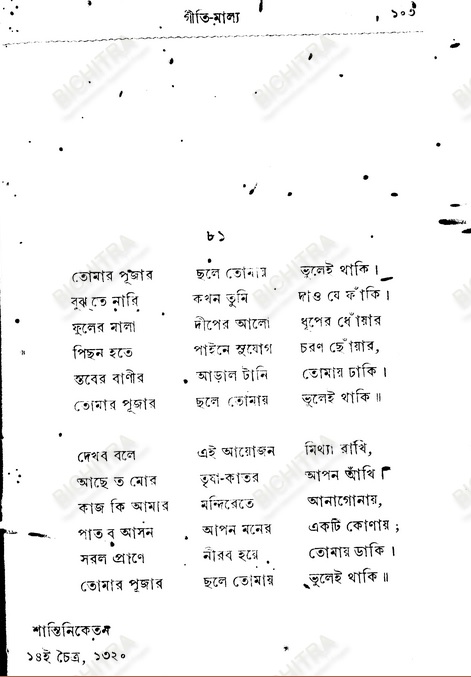 গীতি-মাল্য
৮১
তোমার পূজার ছলে তোমায় ভুলেই থাকি।
বুঝতে নারি কখন তুমি দাও যে ফাঁকি।
ফুলের মালা দীপের আলো ধূপের ধোঁয়ার
পিছন হতে পাইনে সুযোগ চরণ ছোঁয়ার,
স্তবের বাণীর আড়াল টানি তোমায় ঢাকি।
তোমার পূজার ছলে তোমায় ভুলেই থাকি॥
দেখব বলে এই আয়োজন মিথ্যা রাখি,
আছে ত মোর তৃষা-কাতর আপন আঁখি।
কাজ কি আমার মন্দিরেতে আনাগোনায়,
পাতব আসন আপন মনের একটি কোণায়;
সরল প্রাণে নীরব হয়ে তোমায় ডাকি।
তোমার পূজার ছলে তোমায় ভুলেই থাকি॥
শান্তিনিকেতন
১৪ই চৈত্র, ১৩২০
BICHITRA